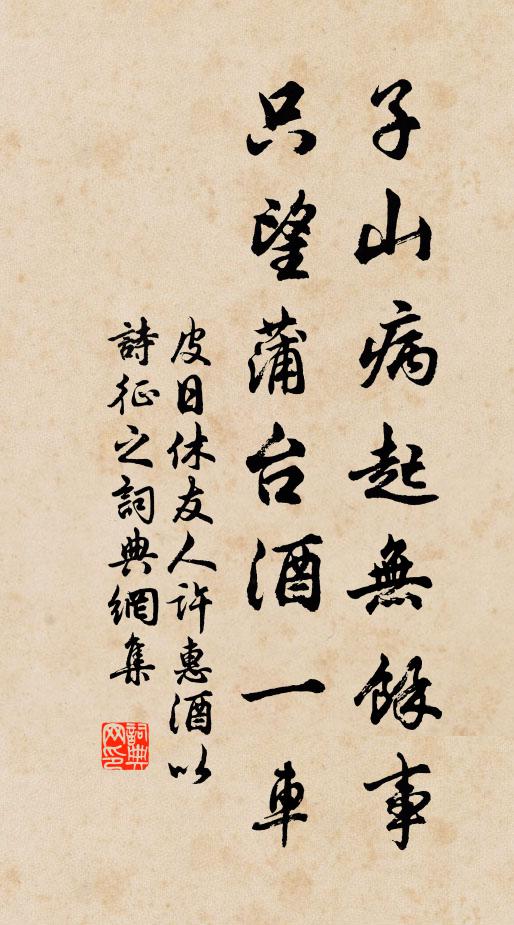 子山病起無餘事
只望蒲台酒一車
皮日休友人許惠酒以
詩征之詞典網集
詞典
网印